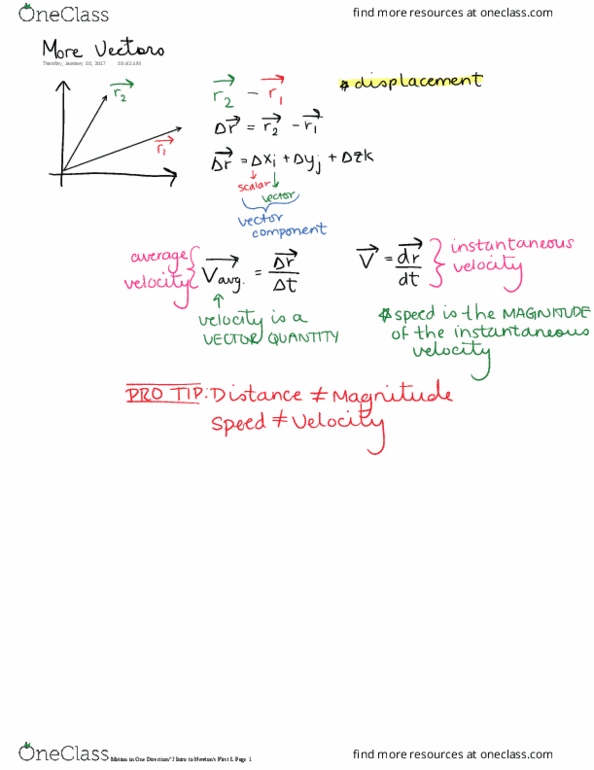 OneClass
find more resources at oneclass.com
More Vectors
Tuesday, January 10, 2017
r₂
r₁
r₂ - r₁
* displacement
Δr = r₂ - r₁
Δr = Δxi + Δyj + Δzk
scalar
vector
vector
component
average
velocity
Vavg. = Δr/Δt
V = dr/dt
instantaneous
velocity
velocity is a
VECTOR QUANTITY
* speed is the MAGNITUDE
of the instantaneous
velocity
PRO TIP: Distance ≠ Magnitude
Speed ≠ Velocity
OneClass
Motion in One Direction*/ Intro to Newton's First L Page 1
find more resources at oneclass.com